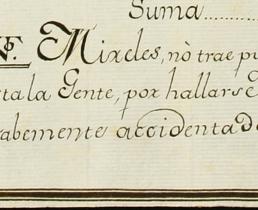 Suma..........
Nᵗ. Mixeles, nò trae pu
ta la Gente, por hallarse
abemente accidentado